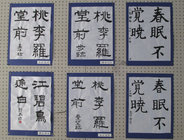 桃李羅
堂前
桃李羅
堂前
春眠不
覚暁
江碧鳥
逾白
桃李羅
堂前
春眠不
覚暁